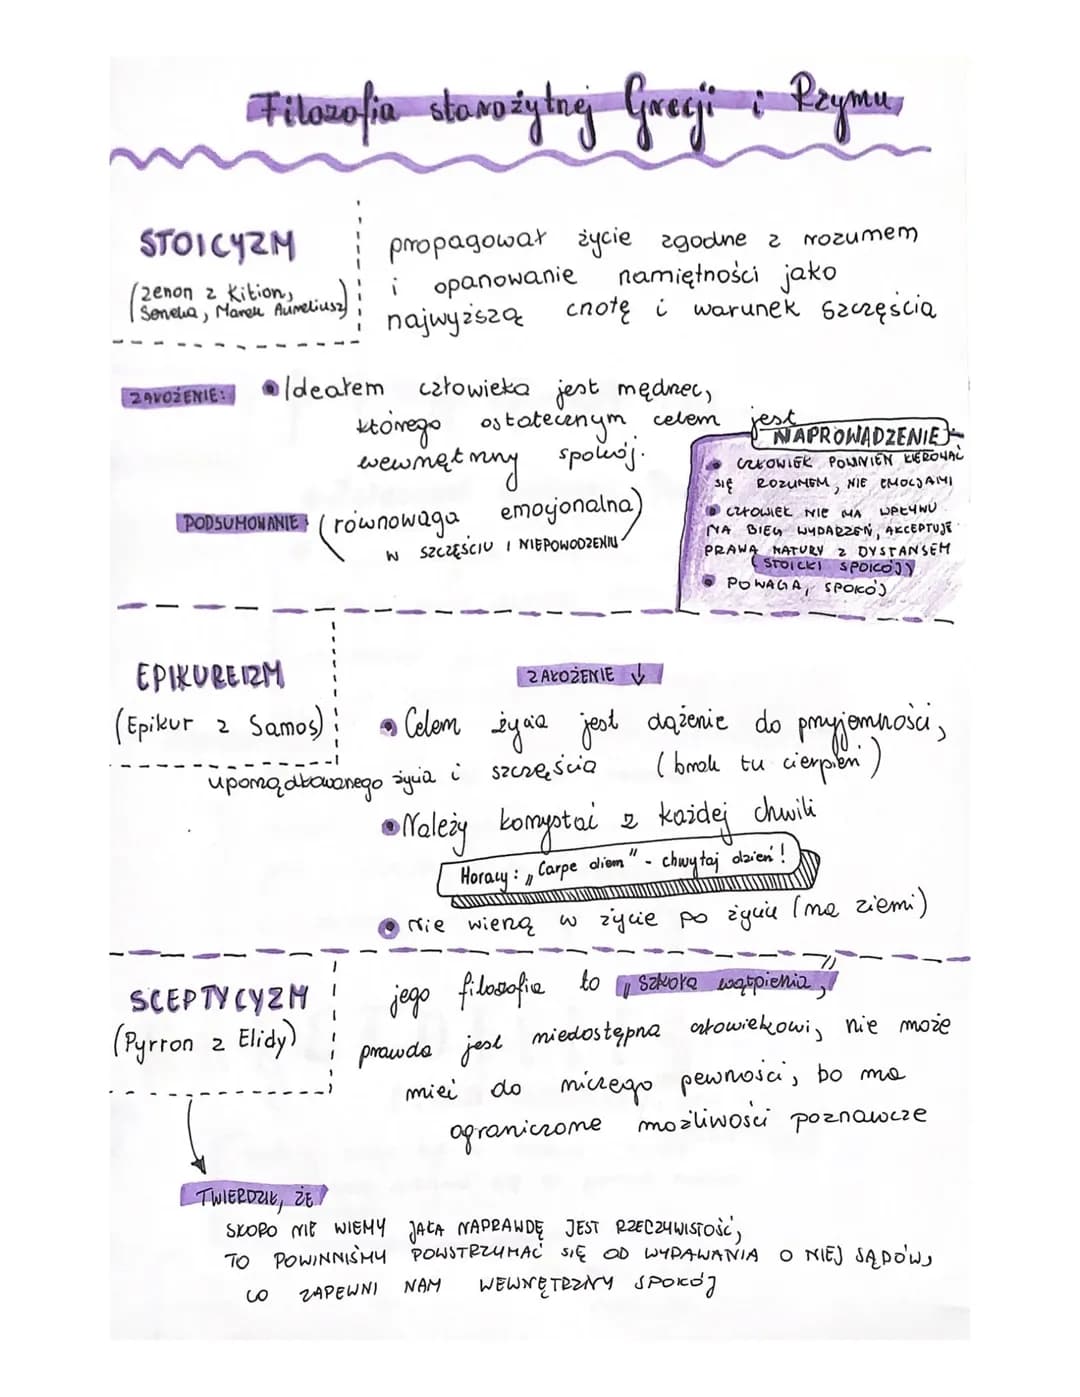 Filozofia starożytnej Grecji i Rzymu
STOICYZM
(Zenon z Kition,
Seneka, Marek Aureliusz)
propagował życie zgodne z rozumem
i opanowanie namiętności jako
najwyższą cnotę i warunek szczęścia
ZAŁOŻENIE:
Ideałem człowieka jest mędrzec,
którego ostatecznym celem jest
wewnętrzny spokój.
PODSUMOWANIE (równowaga emocjonalna)
W SZCZĘŚCIU I NIEPOWODZENIU
NAPROWADZENIE
CZŁOWIEK POWINIEN KIEROWAĆ
SIĘ ROZUMEM, NIE EMOCJAMI
CZŁOWIEK NIE MA WPŁYWU
NA BIEG WYDARZEŃ, AKCEPTUJE
PRAWA NATURY Z DYSTANSEM
(STOICKI SPOKÓJ)
POWAGA, SPOKÓJ
EPIKUREIZM
(Epikur z Samos)
ZAŁOŻENIE ↓
Celem życia jest dążenie do przyjemności,
uporządkowanego życia i szczęścia (brak tu cierpień)
Należy korzystać z każdej chwili
Horacy: „Carpe diem" - chwytaj dzień!
nie wierzą w życie po życiu (na ziemi)
SCEPTYCYZM
(Pyrron z Elidy)
jego filozofia to „szkoła wątpienia,"
prawda jest niedostępna człowiekowi, nie może
mieć do niczego pewności, bo ma
ograniczone możliwości poznawcze
TWIERDZIŁ, ŻE
SKORO NIE WIEMY JAKA NAPRAWDĘ JEST RZECZYWISTOŚĆ,
TO POWINNIŚMY POWSTRZYMAĆ SIĘ OD WYDAWANIA O NIEJ SĄDÓW,
CO ZAPEWNI NAM WEWNĘTRZNY SPOKÓJ